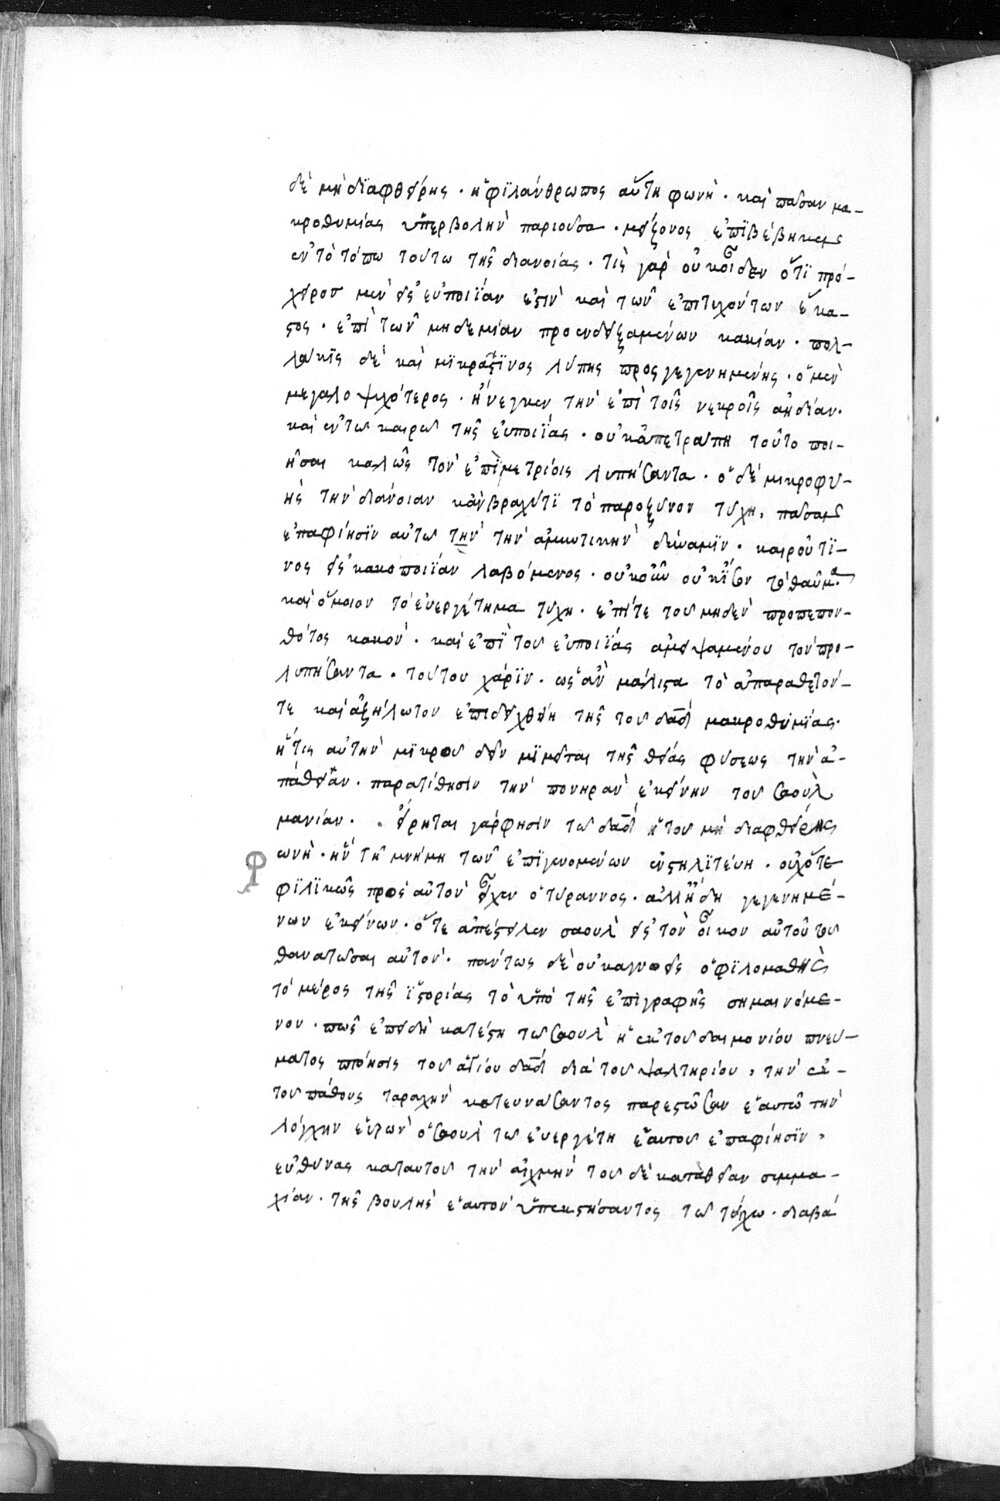 δὲ μὴ διαφθείρης · ἡ φιλάνθρωπος αὕτη φωνὴ · καὶ πᾶσαν μα-
κροθυμίας ὑπερβολὴν παριοῦσα · μείζονος ἐπιβέβηκεν
ἐν τὸ τόπω τούτω τῆς διανοίας · τίς γὰρ οὐκ οἶδεν ὅτι πρό-
χειρος μὲν εἰς εὐποιΐαν ἐστὶν καὶ τῶν ἐπιτυχόντων ἕκα-
στος · ἐπὶ τῶν μηδεμίαν προενδειξαμένων κακίαν · πολ-
λάκις δὲ καὶ μικρᾶς τινος λύπης προσγεγενημένης · ὁ μὲν
μεγαλοψυχότερος · ἤνεγκεν τὴν ἐπὶ τοῖς νεκροῖς ἀηδίαν ·
καὶ ἐν τῶ καιρῶ τῆς εὐποιΐας · οὐκ ἀπετράπη τοῦτο ποι-
ῆσαι καλῶς τὸν ἐπὶ μετρίοις λυπήσαντα · ὁ δὲ μικροφυ-
ὴς τὴν διάνοιαν κἂν βραχύ τι τὸ παροξύνον τύχη, πᾶσαν
ἐπαφίησιν αὐτῶ τὴν τὴν ἀμυντικὴν δύναμιν · καιροῦ τι-
νος εἰς κακοποιΐαν λαβόμενος · οὐκοῦν οὐκ ἴσον τὸ θαῦμα
καὶ ὅμοιον τὸ εὐεργέτημα τύχη · ἐπί τε τοῦ μηδὲν προπεπον-
θότος κακὸν · καὶ ἐπὶ τοῦ εὐποιΐας ἀμειψαμένου τὸν προ-
λυπήσαντα · τούτου χάριν · ὡς ἂν μάλιστα τὸ ἀπαράθετόν
τε καὶ ἀζήλωτον ἐπιδειχθείη τῆς τοῦ δαδ μακροθυμίας ·
ἥτις αὐτὴν μικροῦ δεῖν μιμεῖται τῆς θείας φύσεως τὴν ἀ-
πάθειαν · παρατίθησιν τὴν πονηρὰν ἐκείνην τοῦ σαοὺλ
μανίαν · εἴρηται γάρ φησιν τῶ δαδ ἡ τοῦ μὴ διαφθείρης
ωνὴ · ἣν τῆ μνήμη τῶν ἐπιγενομένων ἐνστηλιτεύει · οὐχ ὅτε
φιλικῶς πρὸς αὐτὸν εἶχεν ὁ τύραννος · ἀλλ' ἤδη γεγενημέ-
νων ἐκείνων · ὅτε ἀπέστειλεν σαοὺλ εἰς τὸν οἶκον αὐτοῦ τοῦ
θανατῶσαι αὐτὸν · πάντως δὲ οὐκ ἀγνοεῖς ὁ φιλομαθὴς
τὸ μέρος τῆς ἱστορίας τὸ ὑπὸ τῆς ἐπιγραφῆς σημαινόμε-
νον · πῶς ἐπειδὴ κατέστη τῶ σαοὺλ ἡ ἐκ τοῦ δαιμονίου πνεύ-
ματος πτόησις τοῦ ἁγίου δαδ διὰ τοῦ ψαλτηρίου, τὴν ἐκ
τοῦ πάθους ταραχὴν κατευνάσαντος παρεστῶσαν ἑαυτῶ τὴν
λόγχην εὑρὼν ὁ σαοὺλ τῶ εὐεργέτη ἑαυτοῦ ἐπαφίησιν,
εὐθύνας κατ' αὐτοῦ τὴν αἰχμὴν τοῦ δὲ κατὰ θείαν συμμα-
χίαν · τῆς βολῆς ἑαυτὸν ὑπεκστήσαντος τῶ τοίχω · διαβα